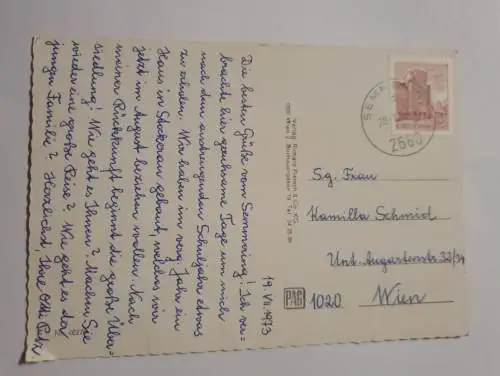 19. VII. 1973
Die besten Grüße vom Semmering! Ich ver-
brachte hier geruhsame Tage um mich
nach dem anstrengenden Schuljahr etwas
zu erholen. Wir haben im verg. Jahr ein
Haus in Stockerau gebaut, welches wir
jetzt im August beziehen wollen. Nach
meiner Rückkunft beginnt die große Über-
siedlung! Wie geht es Ihnen? Machen Sie
wieder eine große Reise? Wie geht es der
jungen Familie? Herzlichst, Ihre
Verlag
PAG
SEMM
2680
Sg. Frau
Kamilla Schmid
Unt. Augartenstr.
1020 Wien